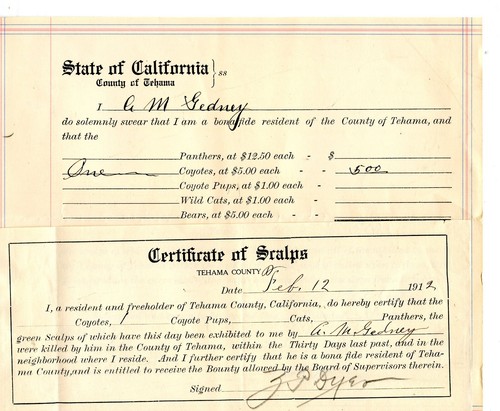 State of California } ss
County of Tehama
I A M Gedney
do solemnly swear that I am a bona fide resident of the County of Tehama, and
that the
Panthers, at $12.50 each - $
One Coyotes, at $5.00 each - - 500
Coyote Pups, at $1.00 each -
Wild Cats, at $1.00 each -
Bears, at $5.00 each - -
Certificate of Scalps
TEHAMA COUNTY
Date Feb. 12 1912
I, a resident and freeholder of Tehama County, California, do hereby certify that the
Coyotes, 1 Coyote Pups, Cats, Panthers, the
green Scalps of which have this day been exhibited to me by A. M. Gedney
were killed by him in the County of Tehama, within the Thirty Days last past, and in the
neighborhood where I reside. And I further certify that he is a bona fide resident of Teha-
ma County, and is entitled to receive the Bounty allowed by the Board of Supervisors therein.
Signed J P Dyer